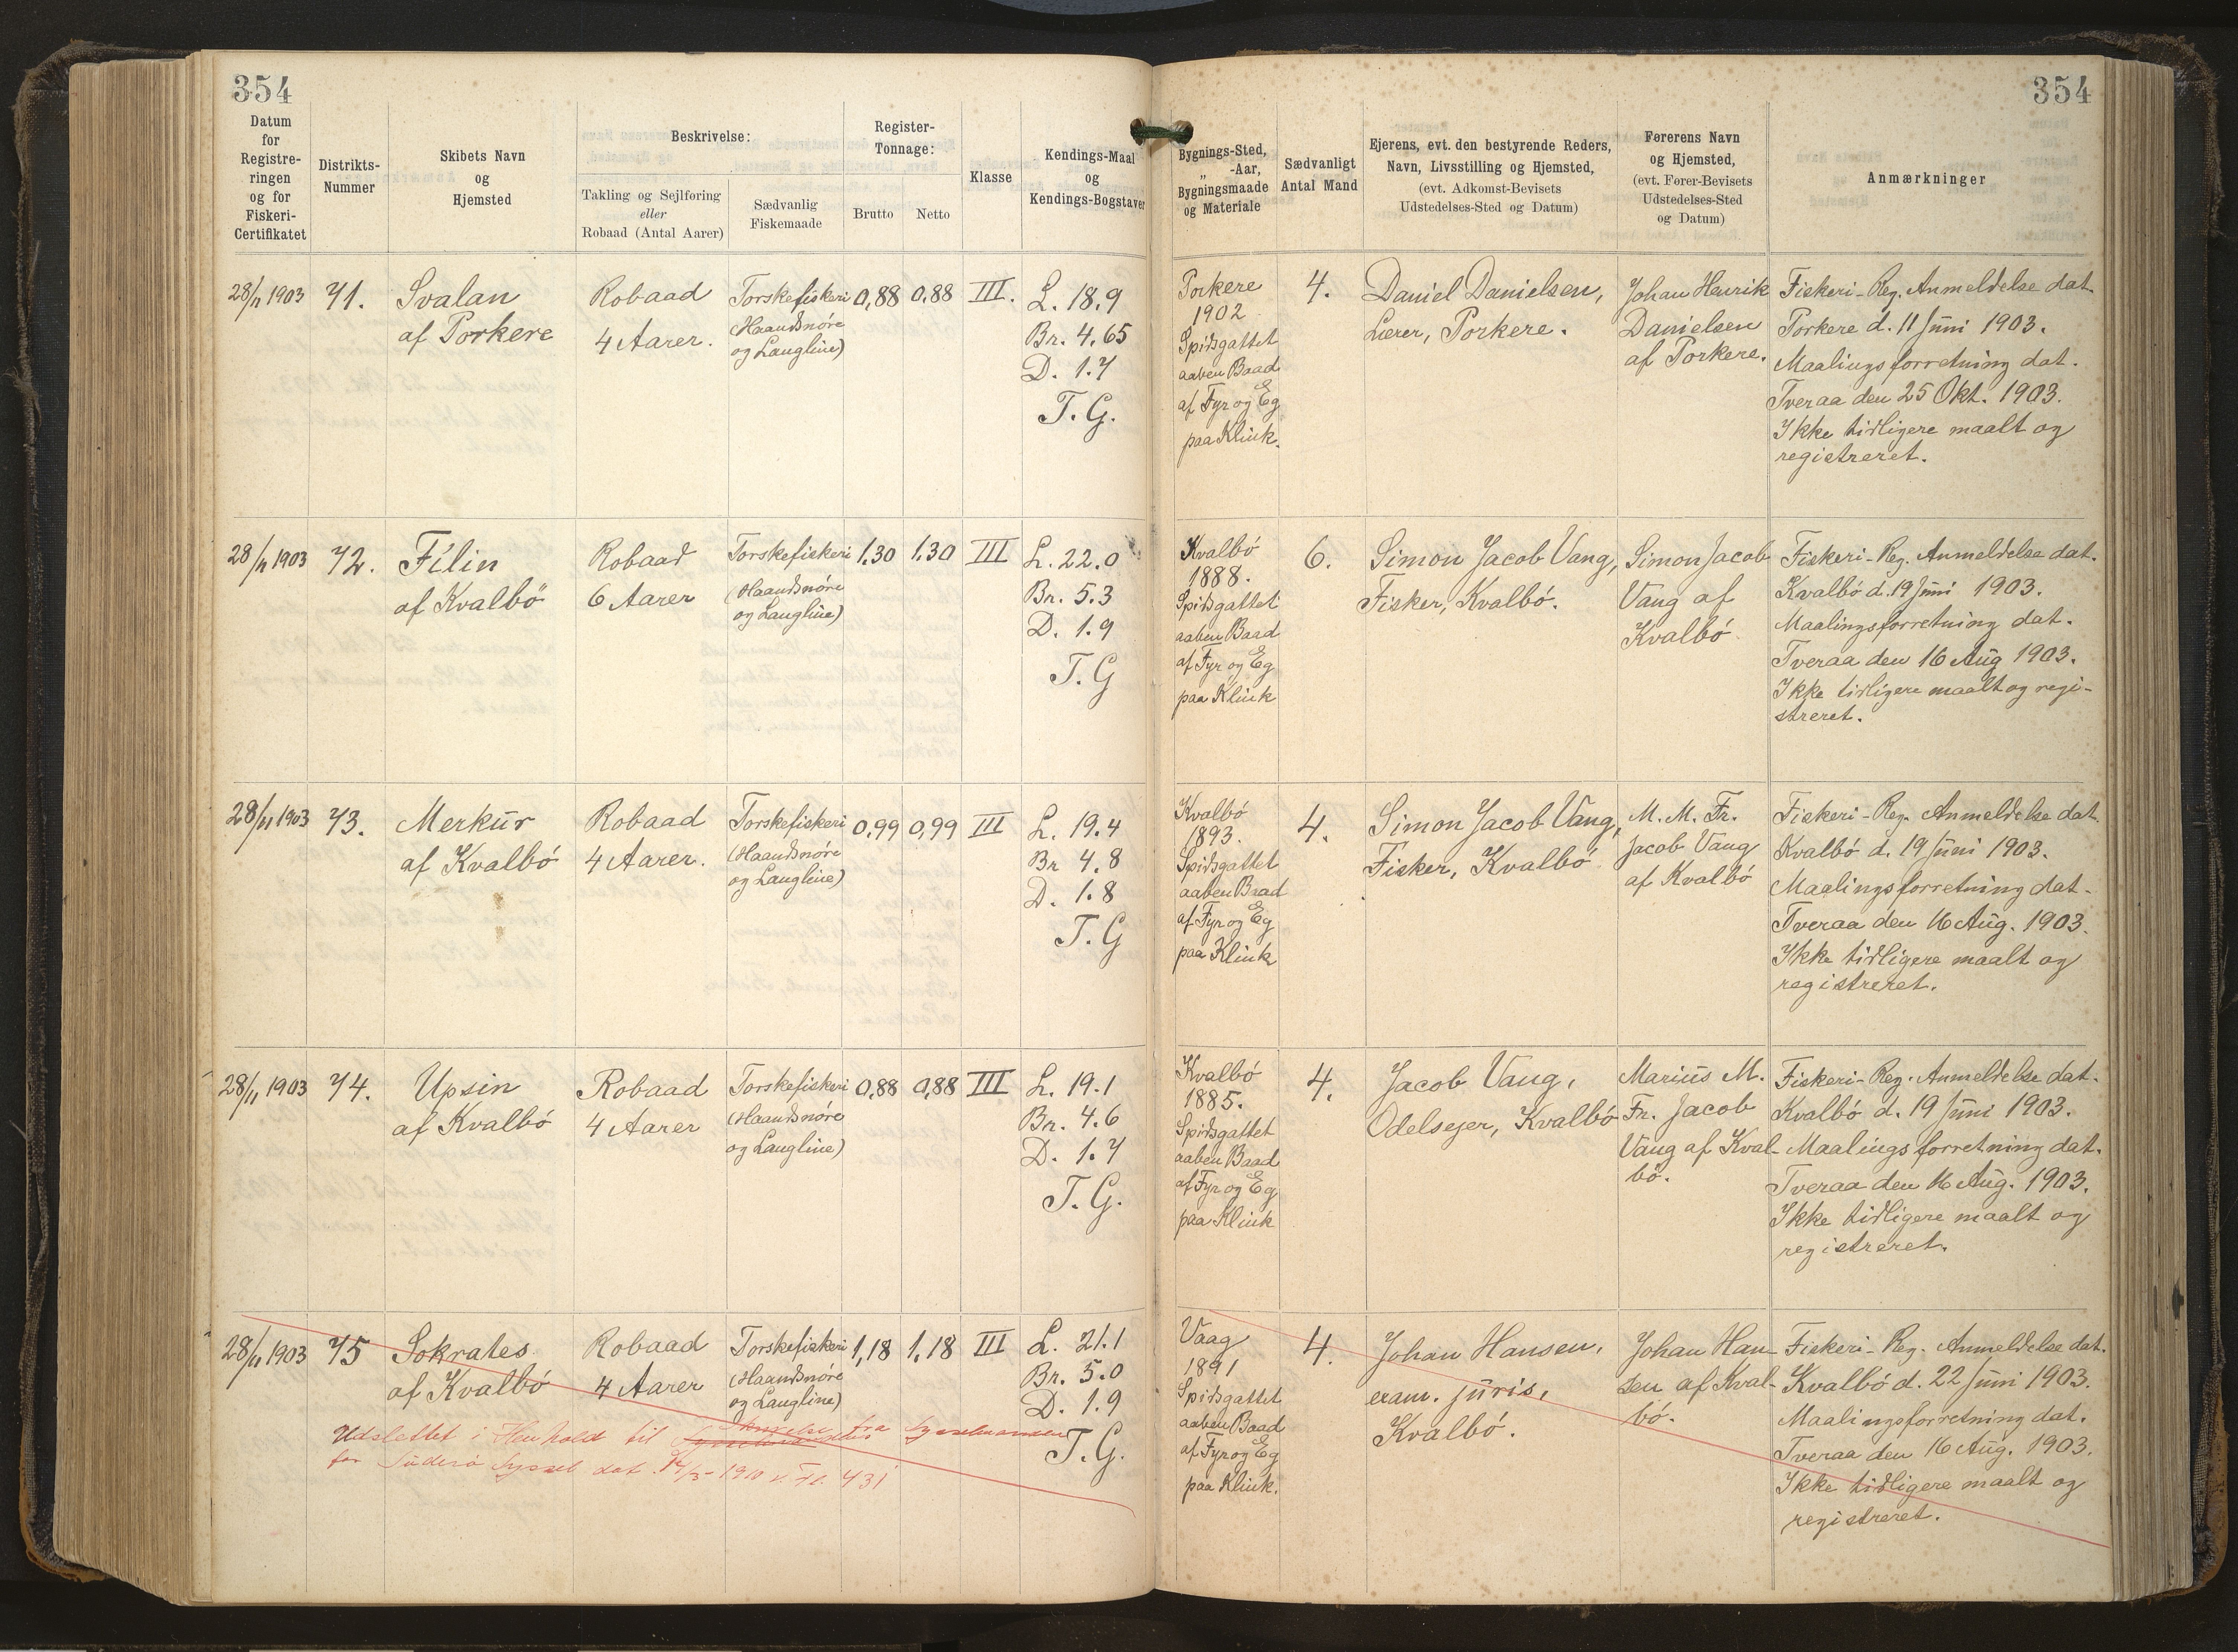 354
354
Datum
for
Registre-
ringen
og for
Fiskeri-
Certifikatet
Distrikts-
Nummer
Skibets Navn
og
Hjemsted
Beskrivelse:
Takling og Sejlføring
eller
Robaad (Antal Aarer)
Sædvanlig
Fiskemaade
Register-
Tonnage:
Brutto
Netto
Klasse
Kendings-Maal
og
Kendings-Bogstaver
Bygnings-Sted,
„ -Aar,
Bygningsmaade
og Materiale
Sædvanligt
Antal Mand
Ejerens, evt. den bestyrende Reders,
Navn, Livsstilling og Hjemsted,
(evt. Adkomst-Bevisets
Udstedelses-Sted og Datum)
Førerens Navn
og Hjemsted,
(evt. Fører-Bevisets
Udstedelses-Sted
og Datum)
Anmærkninger
28/11 1903
71.
Svalan
af Porkere
Robaad
4 Aarer.
Torskefiskeri
(Haandsnøre
og Langline)
0,88
0,88
III.
L. 18.9
Br. 4.65
D. 1.7
T. G.
Porkere
1902
Spidsgattet
aaben Baad
af Fyr og Eg
paa Klink.
4.
Daniel Danielsen,
Lærer, Porkere.
Johan Henrik
Danielsen
af Porkere.
Fiskeri-Reg. Anmeldelse dat.
Porkere d. 11 Juni 1903.
Maalingsforretning dat.
Tveraa den 25 Okt. 1903.
Ikke tidligere maalt og
registreret.
28/11 1903
72.
Filin
af Kvalbö
Robaad
6 Aarer
Torskefiskeri
(Haandsnøre
og Langline)
1.30
1.30
III
L. 22.0
Br. 5.3
D. 1.9
T. G
Kvalbó
1888.
Spidsgattet
aaben Baad
af Fyr og Eg
paa Klink
6.
Simon Jacob Vang,
Fisker, Kvalbó.
Simon Jacob
Vang af
Kvalbó
Fiskeri-Reg. Anmeldelse dat.
Kvalbó d. 19 Juni 1903.
Maalingsforretning dat.
Tveraa den 16 Aug 1903.
Ikke tidligere maalt og regi-
streret.
28/11 1903
73.
Merkur
af Kvalbó
Robaad
4 Aarer.
Torskefiskeri
(Haandsnøre
og Langline)
0,99
0,99
III
L. 19.4
Br 4.8
D. 1.8
T. G
Kvalbó
1893.
Spidsgattet
aaben Baad
af Fyr og Eg
paa Klink
4.
Simon Jacob Vang,
Fisker, Kvalbó
M. M. Fr.
Jacob Vang
af Kvalbó
Fiskeri-Reg. Anmeldelse dat.
Kvalbó d. 19 Juni 1903.
Maalingsforretning dat.
Tveraa den 16 Aug. 1903.
Ikke tidligere maalt og
registreret.
28/11 1903
74.
Upsin
af Kvalbó
Robaad
4 Aarer
Torskefiskeri
(Haandsnøre
og Langline)
0,88
0,88
III
L. 19.1
Br. 4.6
D. 1.7
T. G.
Kvalbó
1885.
Spidsgattet
aaben Baad
af Fyr og Eg
paa Klink
4.
Jacob Vang,
Odelsejer, Kvalbó
Marius M.
Fr. Jacob
Vang af Kval-
bó.
Fiskeri-Reg. Anmeldelse dat.
Kvalbó d. 19 Juni 1903.
Maalingsforretning dat.
Tveraa den 16 Aug. 1903.
Ikke tidligere maalt og
registreret.
28/11 1903
75
Sokrates
af Kvalbó
Robaad
4 Aarer
Torskefiskeri
(Haandsnøre
og Langline)
1,18
1.18
III
L. 21.1
Br. 5.0
D. 1.9
T. G.
Udslettet i Henhold til Skrivelse fra Sysselmanden
for Suderø Syssel dat. 14/3-1910 v. Fl. 431
Vaag
1891
Spidsgattet
aaben Baad
af Fyr og Eg
paa Klink.
4.
Johan Hansen,
exam. juris,
Kvalbó.
Johan Han-
sen af Kval-
bó.
Fiskeri-Reg. Anmeldelse dat.
Kvalbó d. 22 Juni 1903.
Maalingsforretning dat.
Tveraa den 16 Aug. 1903.
Ikke tidligere maalt og
registreret.